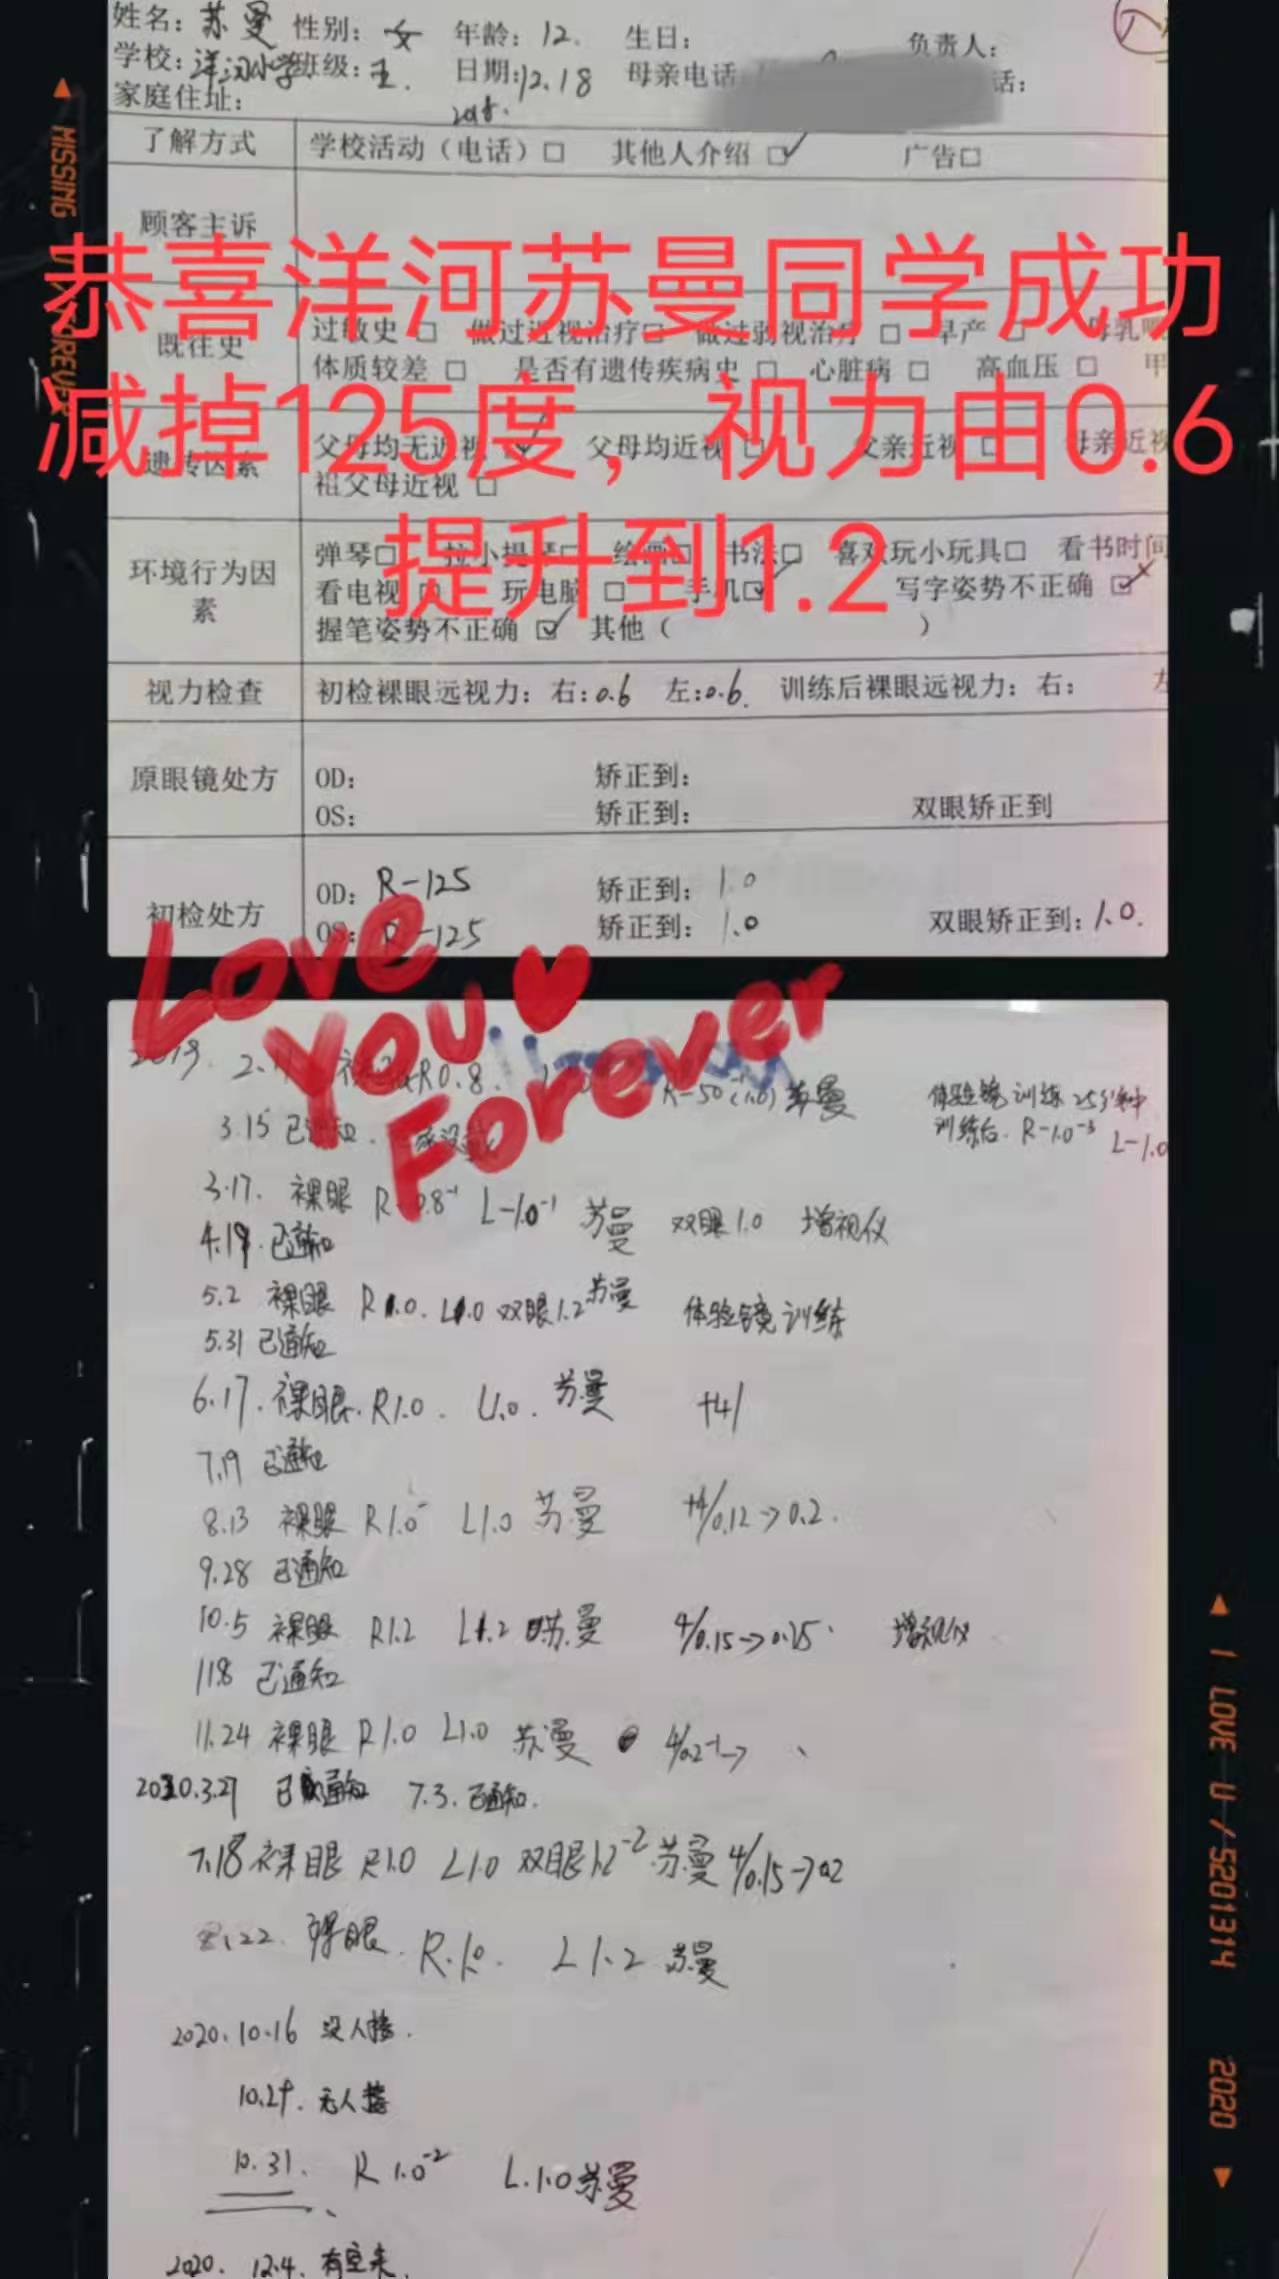 姓名：苏曼 性别：女 年龄：12. 生日： 负责人：
学校：洋河小学 班级：五. 日期：12.18 母亲电话 话：
家庭住址： 2018.
了解方式 学校活动（电话）□ 其他人介绍 ☑ 广告□
顾客主诉
恭喜洋河苏曼同学成功
减掉125度，视力由0.6
提升到1.2
既往史 过敏史 □ 做过近视治疗□ 做过弱视治疗 □ 早产 □ 母乳
体质较差 □ 是否有遗传疾病史 □ 心脏病 □ 高血压 □ 甲
遗传因素 父母均无近视 ☑ 父母均近视 □ 父亲近视 □ 母亲近视
祖父母近视 □
环境行为因素 弹琴□ 拉小提琴□ 绘画□ 书法□ 喜欢玩小玩具□ 看书时间
看电视 □ 玩电脑 □ 手机☑ 写字姿势不正确 ☑
握笔姿势不正确 ☑ 其他（ ）
视力检查 初检裸眼远视力：右：0.6 左：0.6. 训练后裸眼远视力：右： 左
原眼镜处方 OD： 矫正到：
OS： 矫正到： 双眼矫正到
初检处方 OD：R-125 矫正到：1.0
OS：R-125 矫正到：1.0 双眼矫正到：1.0.
Love
You
Forever
2019. 2. R0.8. R-50 (1.0) 苏曼 体验镜训练25分钟
训练后. R-1.0⁻³ L-1.0
3.15 已通知.
3.17. 裸眼 R-0.8⁻¹ L-1.0⁻¹ 苏曼 双眼1.0 增视仪
4.19. 已通知
5.2 裸眼 R1.0. L1.0 双眼1.2 苏曼 体验镜训练
5.31 已通知
6.17. 裸眼. R1.0. L1.0. 苏曼 +4/
7.19 已通知
8.13 裸眼 R1.0⁻ L1.0 苏曼 +4/0.12→0.2.
9.28 已通知
10.5 裸眼 R1.2 L1.2 苏曼 4/0.15→0.25. 增视仪
11.8 已通知
11.24 裸眼 R1.0 L1.0 苏曼 4/0.2⁻¹→
2020.3.27 已通知 7.3. 已通知.
7.18 裸眼 R1.0 L1.0 双眼1.2⁻² 苏曼 4/0.15→0.2
8.22. 裸眼. R.1.0. L1.2 苏曼
2020.10.16 没人接.
10.29. 无人接
10.31. R1.0⁻² L.1.0 苏曼
2020. 12.4. 有空来.
MISSING U / FOREVER
I LOVE U / 5201314 2020